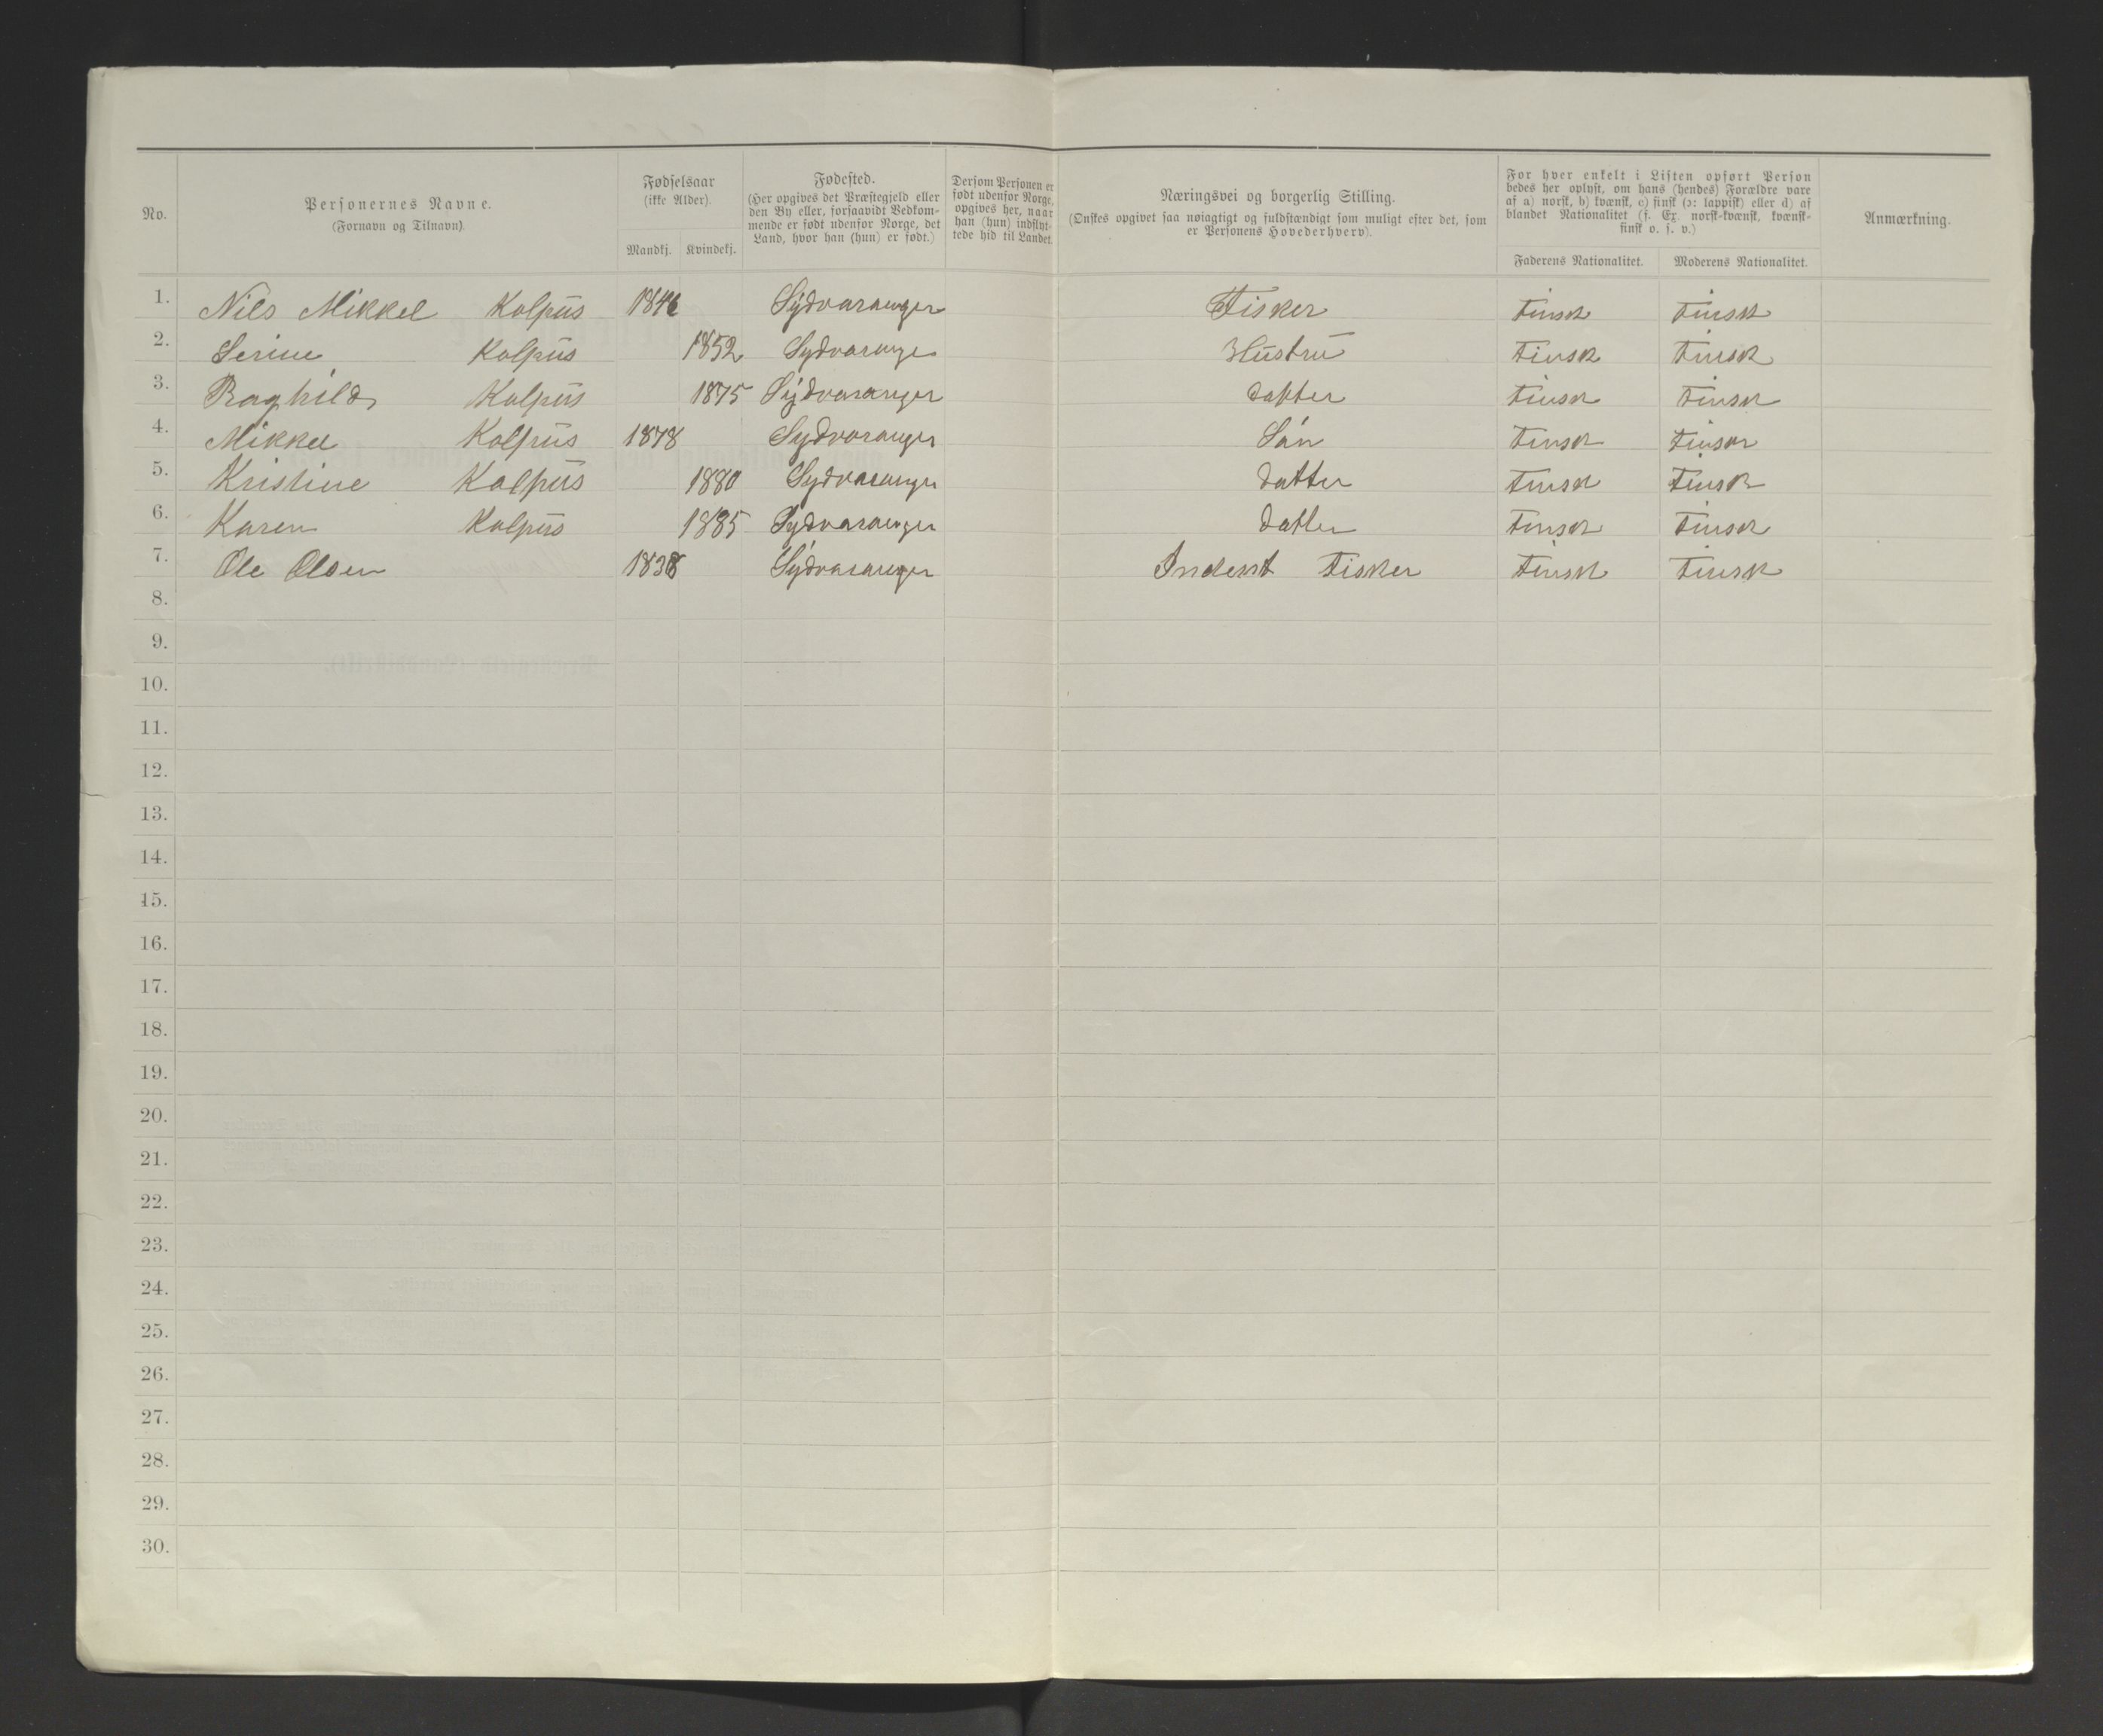 No.
Personernes Navne.
(Fornavn og Tilnavn).
Fødselsaar
(ikke Alder).
Mandkj. Kvindekj.
Fødested.
(Her opgives det Præstegjeld eller
den By eller, forsaavidt Vedkom-
mende er født udenfor Norge, det
Land, hvor han (hun) er født.)
Dersom Personen er
født udenfor Norge,
opgives her, naar
han (hun) indflyt-
tede hid til Landet.
Næringsvei og borgerlig Stilling.
(Ønskes opgivet saa nøiagtigt og fuldstændigt som muligt efter det, som
er Personens Hovederhverv).
For hver enkelt i Listen opført Person
bedes her oplyst, om hans (hendes) Forældre vare
af a) norsk, b) kvænsk, c) finsk (ɔ: lappisk) eller d) af
blandet Nationalitet (f. Ex. norsk-kvænsk, kvænsk-
finsk o. s. v.)
Faderens Nationalitet. Moderens Nationalitet.
Anmærkning.
1. Nils Mikkel Kolpüs 1846 Sydvaranger Fisker Finsk Finsk
2. Serine Kolpüs 1852 Sydvaranger Hüstrü Finsk Finsk
3. Raghild Kolpüs 1875 Sydvaranger datter Finsk Finsk
4. Mikkel Kolpüs 1878 Sydvaranger Sön Finsk Finsk
5. Kristine Kolpüs 1880 Sydvaranger datter Finsk Finsk
6. Karen Kolpüs 1885 Sydvaranger datter Finsk Finsk
7. Ole Olsen 1838 Sydvaranger Inderst Fisker Finsk Finsk
8.
9.
10.
11.
12.
13.
14.
15.
16.
17.
18.
19.
20.
21.
22.
23.
24.
25.
26.
27.
28.
29.
30.